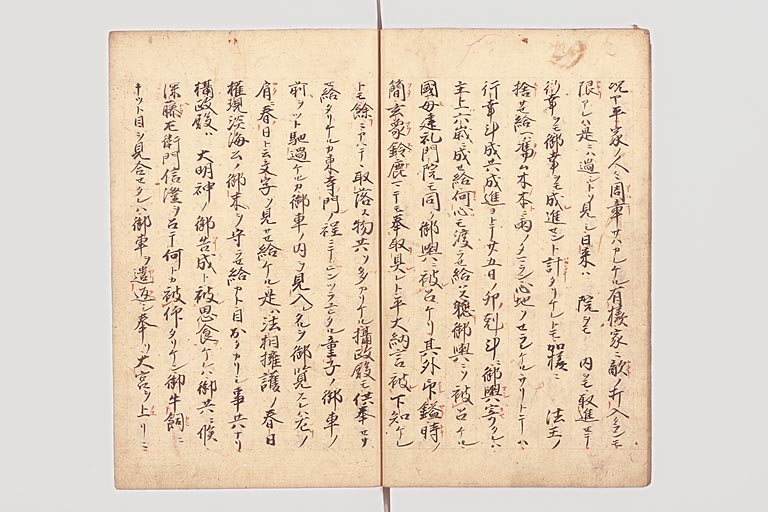 况ヤ平家ノ人々周章サハカレケル有様家ニ敵ノ打入
限アレハ是ニハ過シトソ見シ日来ハ 院ヲモ 内ヲモ取進セテ
御幸ヲモ成進セント計タリケレトモ加様ニ 法王ノ
捨サセ給ヘハ憑ム木本ニ雨ノタマラヌ心地ソセラレケルサリトテハ
行幸斗成共成進ヨトテ廿五日ノ卯剋斗ニ御輿寄タレハ
主上六歳ニ成セ給何心モ渡ラセ給ハス御輿ニソ被召ケル
國母建礼門院モ同ノ御輿ニ被召ケリ其外印鎰時ノ
簡玄象鈴鹿ニテモ奉取具ト平大納言被下知ケレ
トモ餘ニアハテヽ取落ス物共ソ多カリケル攝政殿モ供奉セサセ
給タリケルカ東寺門ノ程ニテヒンツラユヒタル童子ノ御車ノ
前ヲツト馳過ケルカ御車ノ内ヲ見入タルヲ御覧スレハ左ノ
肩ニ春日ト云文字ノ見サセ給ケル是ハ法相擁護ノ春日
權現淡海公ノ御末ヲ守ラセ給ヘト目出カリシ事共ナリ
攝政殿ハ 大明神ノ御告成ト被思食ケレハ御共ニ候
藤左衛門信澄ヲ召テ何トカ被仰タリケン御牛飼ニ
キツト目ヲ見合セタレハ御車ヲ遣返シ奉リ大宮ヲ上リニ